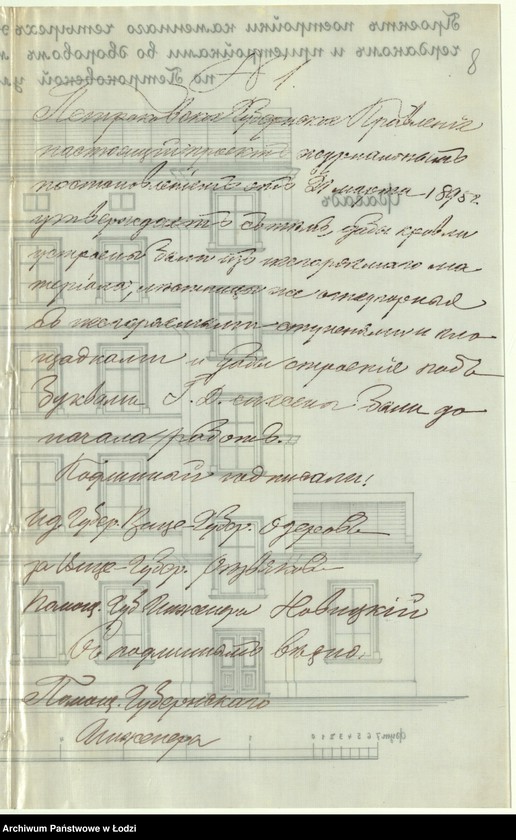 Проектъ постройки каменнаго четырехъ
чердакомъ и пристройками во дворовомъ
по Петроковской ул
8
№ 1
Петроковское Губернское Правленіе
настоящій проектъ журнальнымъ
постановленіемъ отъ 21 марта 1895 г.
утверждаетъ съ тѣмъ, дабы кровли
устроены были изъ несгораемаго ма
теріала, лѣстницы же
съ несгораемыми ступенями и пло
щадками и дабы строеніе подъ
буквами Г. Д снесены были до
начала работъ.
Подлинный подписали:
Ид. Губер. Вице-Губер. Озеровъ
за Вице-Губер.
Помощ. Губ. Инженера Новицкій
Съ подлиннымъ вѣрно.
Помощ. Губернскаго
Инженера
Фасадъ
фут 7 6 5 4 3 2 1 0
Archiwum Państwowe w Łodzi